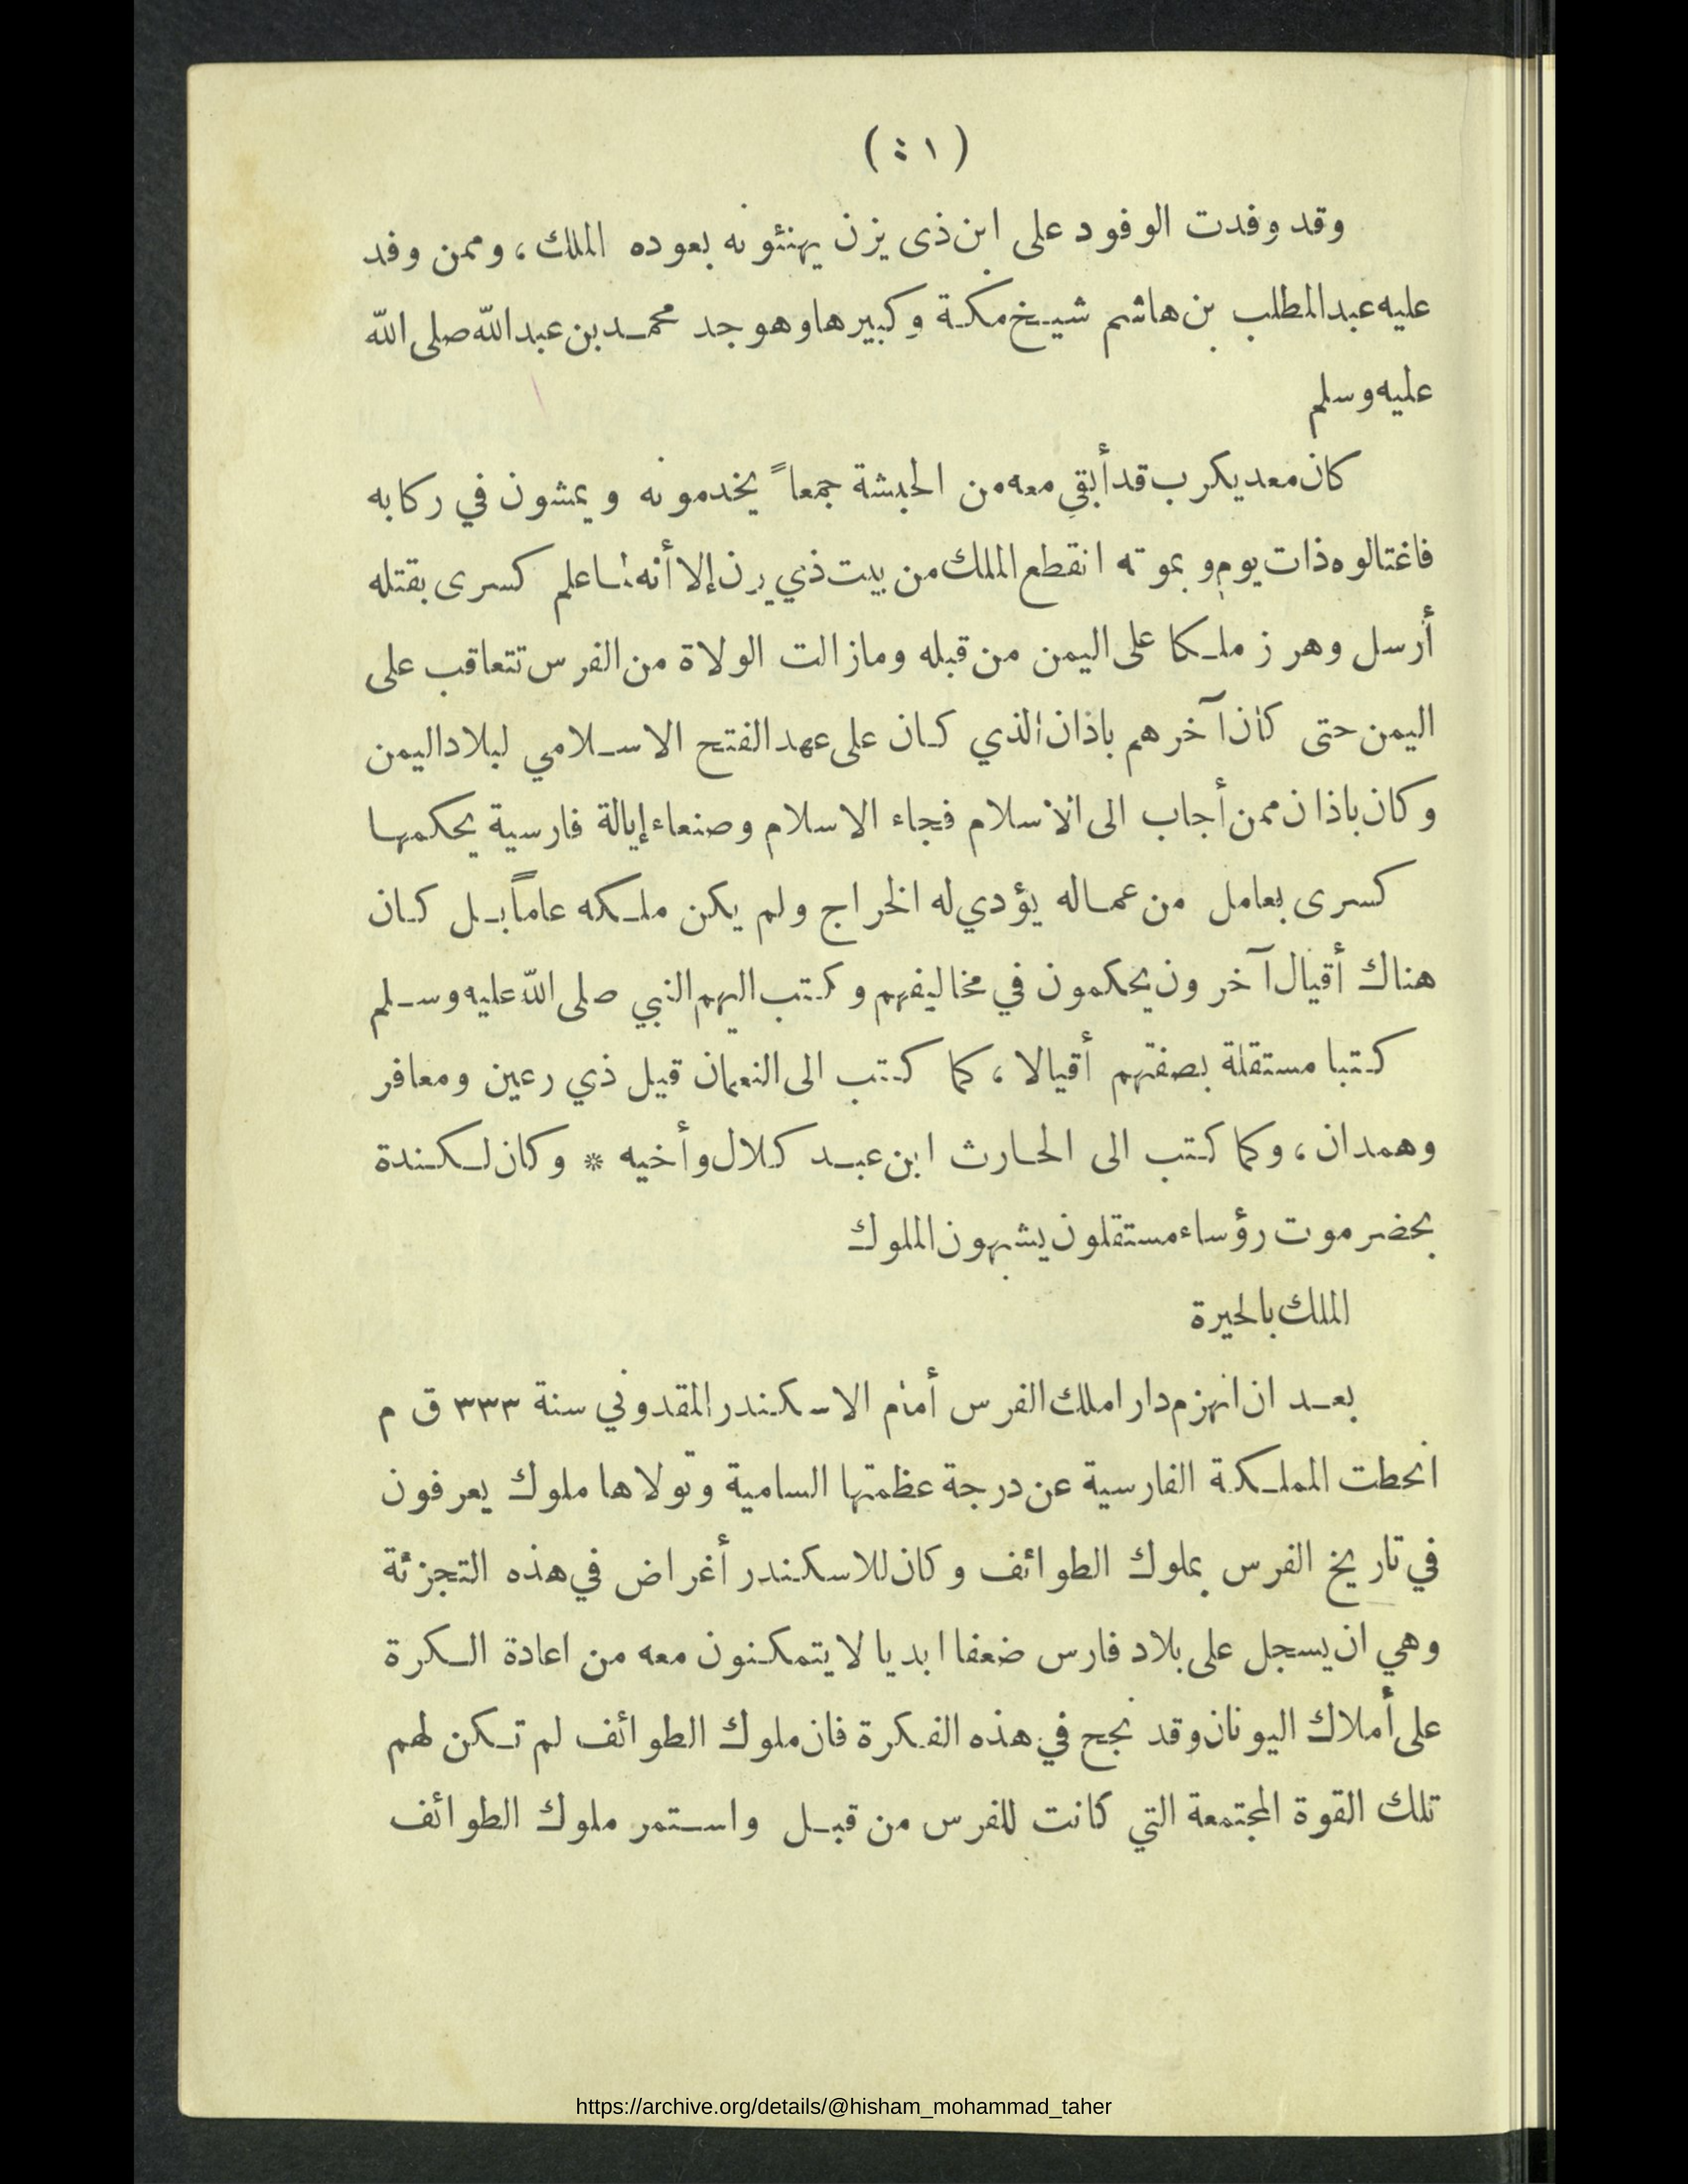 (٤١)
وقد وفدت الوفود على ابن ذى يزن يهنئونه بعوده الملك، وممن وفد
عليه عبدالمطلب بن هاشم شيخ مكة وكبيرها وهو جد محمد بن عبدالله صلى الله
عليه وسلم
كان معديكرب قد أبقي معه من الحبشة جمعاً يخدمونه ويمشون في ركابه
فاغتالوه ذات يوم وبموته انقطع الملك من بيت ذي يزن إلا أنه لما علم كسرى بقتله
أرسل وهرز ملكا على اليمن من قبله ومازالت الولاة من الفرس تتعاقب على
اليمن حتى كان آخرهم باذان الذي كان على عهد الفتح الاسلامي لبلاد اليمن
وكان باذان ممن أجاب الى الاسلام فجاء الاسلام وصنعاء إيالة فارسية يحكمها
كسرى بعامل من عماله يؤدي له الخراج ولم يكن ملكه عاماً بل كان
هناك أقيال آخرون يحكمون في مخاليفهم وكتب اليهم النبي صلى الله عليه وسلم
كتبا مستقلة بصفتهم أقيالا، كما كتب الى النعمان قيل ذي رعين ومعافر
وهمدان، وكما كتب الى الحارث ابن عبد كلال وأخيه * وكان لكندة
بحضرموت رؤساء مستقلون يشبهون الملوك
الملك بالحيرة
بعد ان انهزم دارا ملك الفرس أمام الاسكندر المقدوني سنة ٣٣٣ ق م
انحطت المملكة الفارسية عن درجة عظمتها السامية وتولاها ملوك يعرفون
في تاريخ الفرس بملوك الطوائف وكان للاسكندر أغراض في هذه التجزئة
وهي ان يسجل على بلاد فارس ضعفا ابديا لا يتمكنون معه من اعادة الكرة
على أملاك اليونان وقد نجح في هذه الفكرة فان ملوك الطوائف لم تكن لهم
تلك القوة المجتمعة التي كانت للفرس من قبل واستمر ملوك الطوائف
https://archive.org/details/@hisham_mohammad_taher